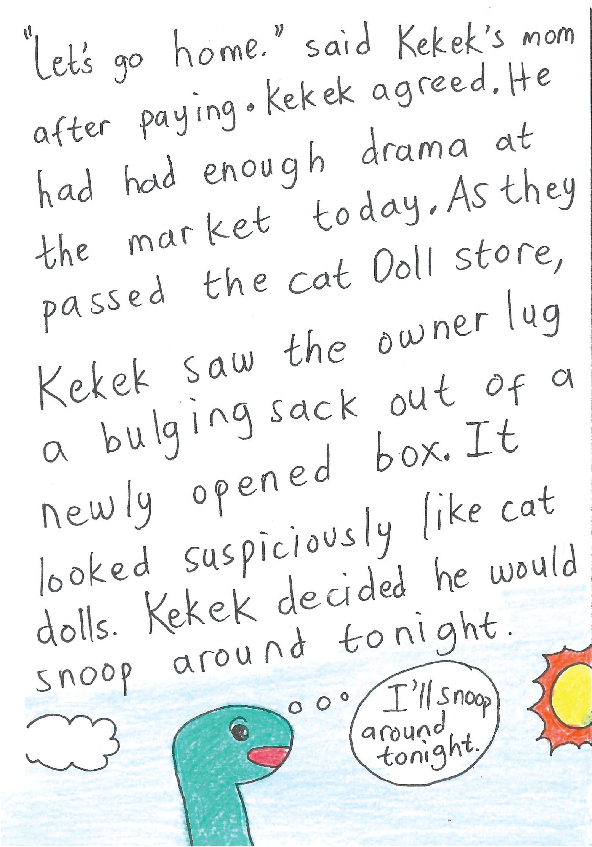 "Let's go home." said Kekek's mom
after paying. Kekek agreed. He
had had enough drama at
the market today. As they
passed the cat Doll store,
Kekek saw the owner lug
a bulging sack out of a
newly opened box. It
looked suspiciously like cat
dolls. Kekek decided he would
snoop around tonight.
I'll snoop
around
tonight.